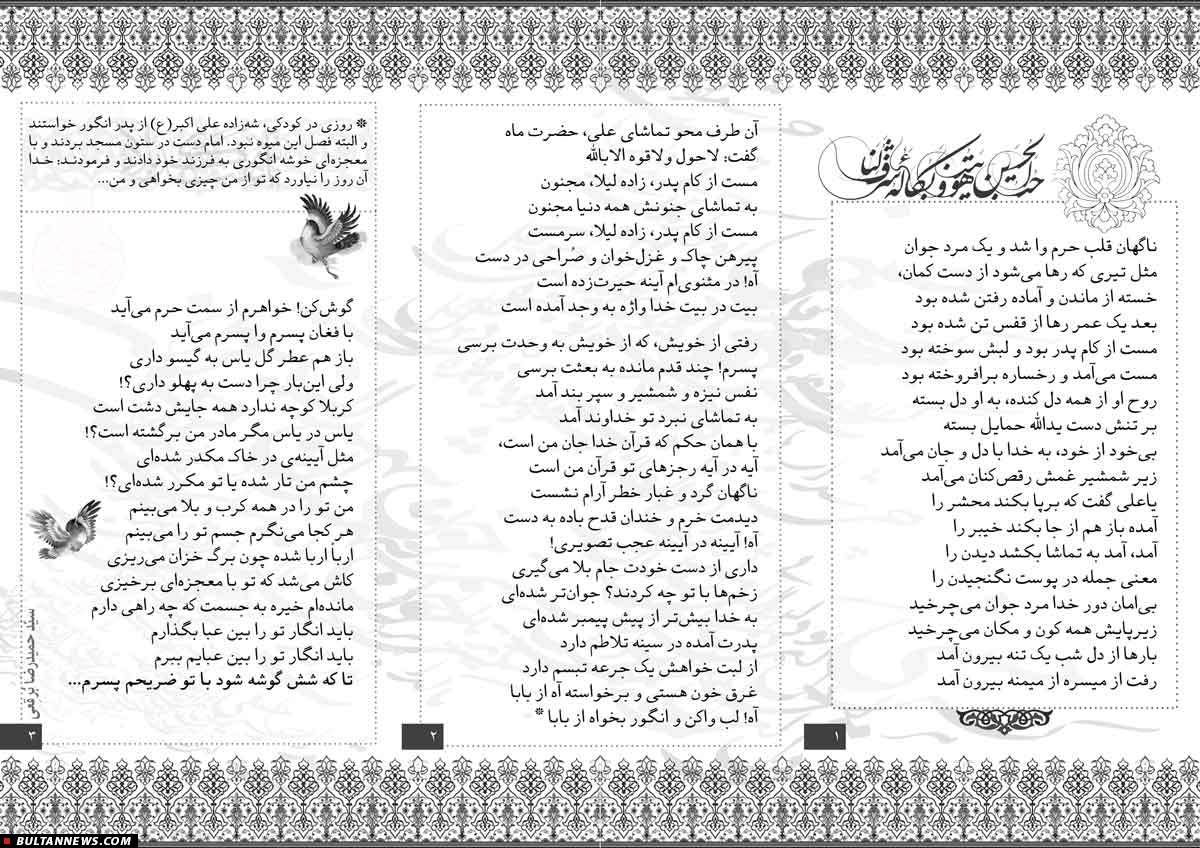 حب الحسین هویتنا و بکائه شرفنا
ناگهان قلب حرم وا شد و یک مرد جوان
مثل تیری که رها می‌شود از دست کمان،
خسته از ماندن و آماده رفتن شده بود
بعد یک عمر رها از قفس تن شده بود
مست از کام پدر بود و لبش سوخته بود
مست می‌آمد و رخساره برافروخته بود
روح او از همه دل کنده، به او دل بسته
بر تنش دست یدالله حمایل بسته
بی‌خود از خود، به خدا با دل و جان می‌آمد
زیر شمشیر غمش رقص‌کنان می‌آمد
یاعلی گفت که برپا بکند محشر را
آمده باز هم از جا بکند خیبر را
آمد، آمد به تماشا بکشد دیدن را
معنی جمله در پوست نگنجیدن را
بی‌امان دور خدا مرد جوان می‌چرخید
زیرپایش همه کون و مکان می‌چرخید
بارها از دل شب یک تنه بیرون آمد
رفت از میسره از میمنه بیرون آمد
۱
آن طرف محو تماشای علی، حضرت ماه
گفت: لاحول ولاقوه الابالله
مست از کام پدر، زاده لیلا، مجنون
به تماشای جنونش همه دنیا مجنون
مست از کام پدر، زاده لیلا، سرمست
پیرهن چاک و غزل‌خوان و صُراحی در دست
آه! در مثنوی‌ام آینه حیرت‌زده است
بیت در بیت خدا واژه به وجد آمده است
رفتی از خویش، که از خویش به وحدت برسی
پسرم! چند قدم مانده به بعثت برسی
نفس نیزه و شمشیر و سپر بند آمد
به تماشای نبرد تو خداوند آمد
با همان حکم که قرآن خدا جان من است،
آیه در آیه رجزهای تو قرآن من است
ناگهان گرد و غبار خطر آرام نشست
دیدمت خرم و خندان قدح باده به دست
آه! آیینه در آیینه عجب تصویری!
داری از دست خودت جام بلا می‌گیری
زخم‌ها با تو چه کردند؟ جوان‌تر شده‌ای
به خدا بیش‌تر از پیش پیمبر شده‌ای
پدرت آمده در سینه تلاطم دارد
از لبت خواهش یک جرعه تبسم دارد
غرق خون هستی و برخواسته آه از بابا
آه! لب واکن و انگور بخواه از بابا *
۲
* روزی در کودکی، شه‌زاده علی اکبر(ع) از پدر انگور خواستند
و البته فصل این میوه نبود. امام دست در ستون مسجد بردند و با
معجزه‌ای خوشه انگوری به فرزند خود دادند و فرمودند: خدا
آن روز را نیاورد که تو از من چیزی بخواهی و من...
گوش‌کن! خواهرم از سمت حرم می‌آید
با فغان پسرم وا پسرم می‌آید
باز هم عطر گل یاس به گیسو داری
ولی این‌بار چرا دست به پهلو داری؟!
کربلا کوچه ندارد همه جایش دشت است
یاس در یاس مگر مادر من برگشته است؟!
مثل آیینه‌ی در خاک مکدر شده‌ای
چشم من تار شده یا تو مکرر شده‌ای؟!
من تو را در همه کرب و بلا می‌بینم
هر کجا می‌نگرم جسم تو را می‌بینم
اربا اربا شده چون برگ خزان می‌ریزی
کاش می‌شد که تو با معجزه‌ای برخیزی
مانده‌ام خیره به جسمت که چه راهی دارم
باید انگار تو را بین عبا بگذارم
باید انگار تو را بین عبایم ببرم
تا که شش گوشه شود با تو ضریحم پسرم...
سیّد حمیدرضا برقعی
۳
BULTANNEWS.COM